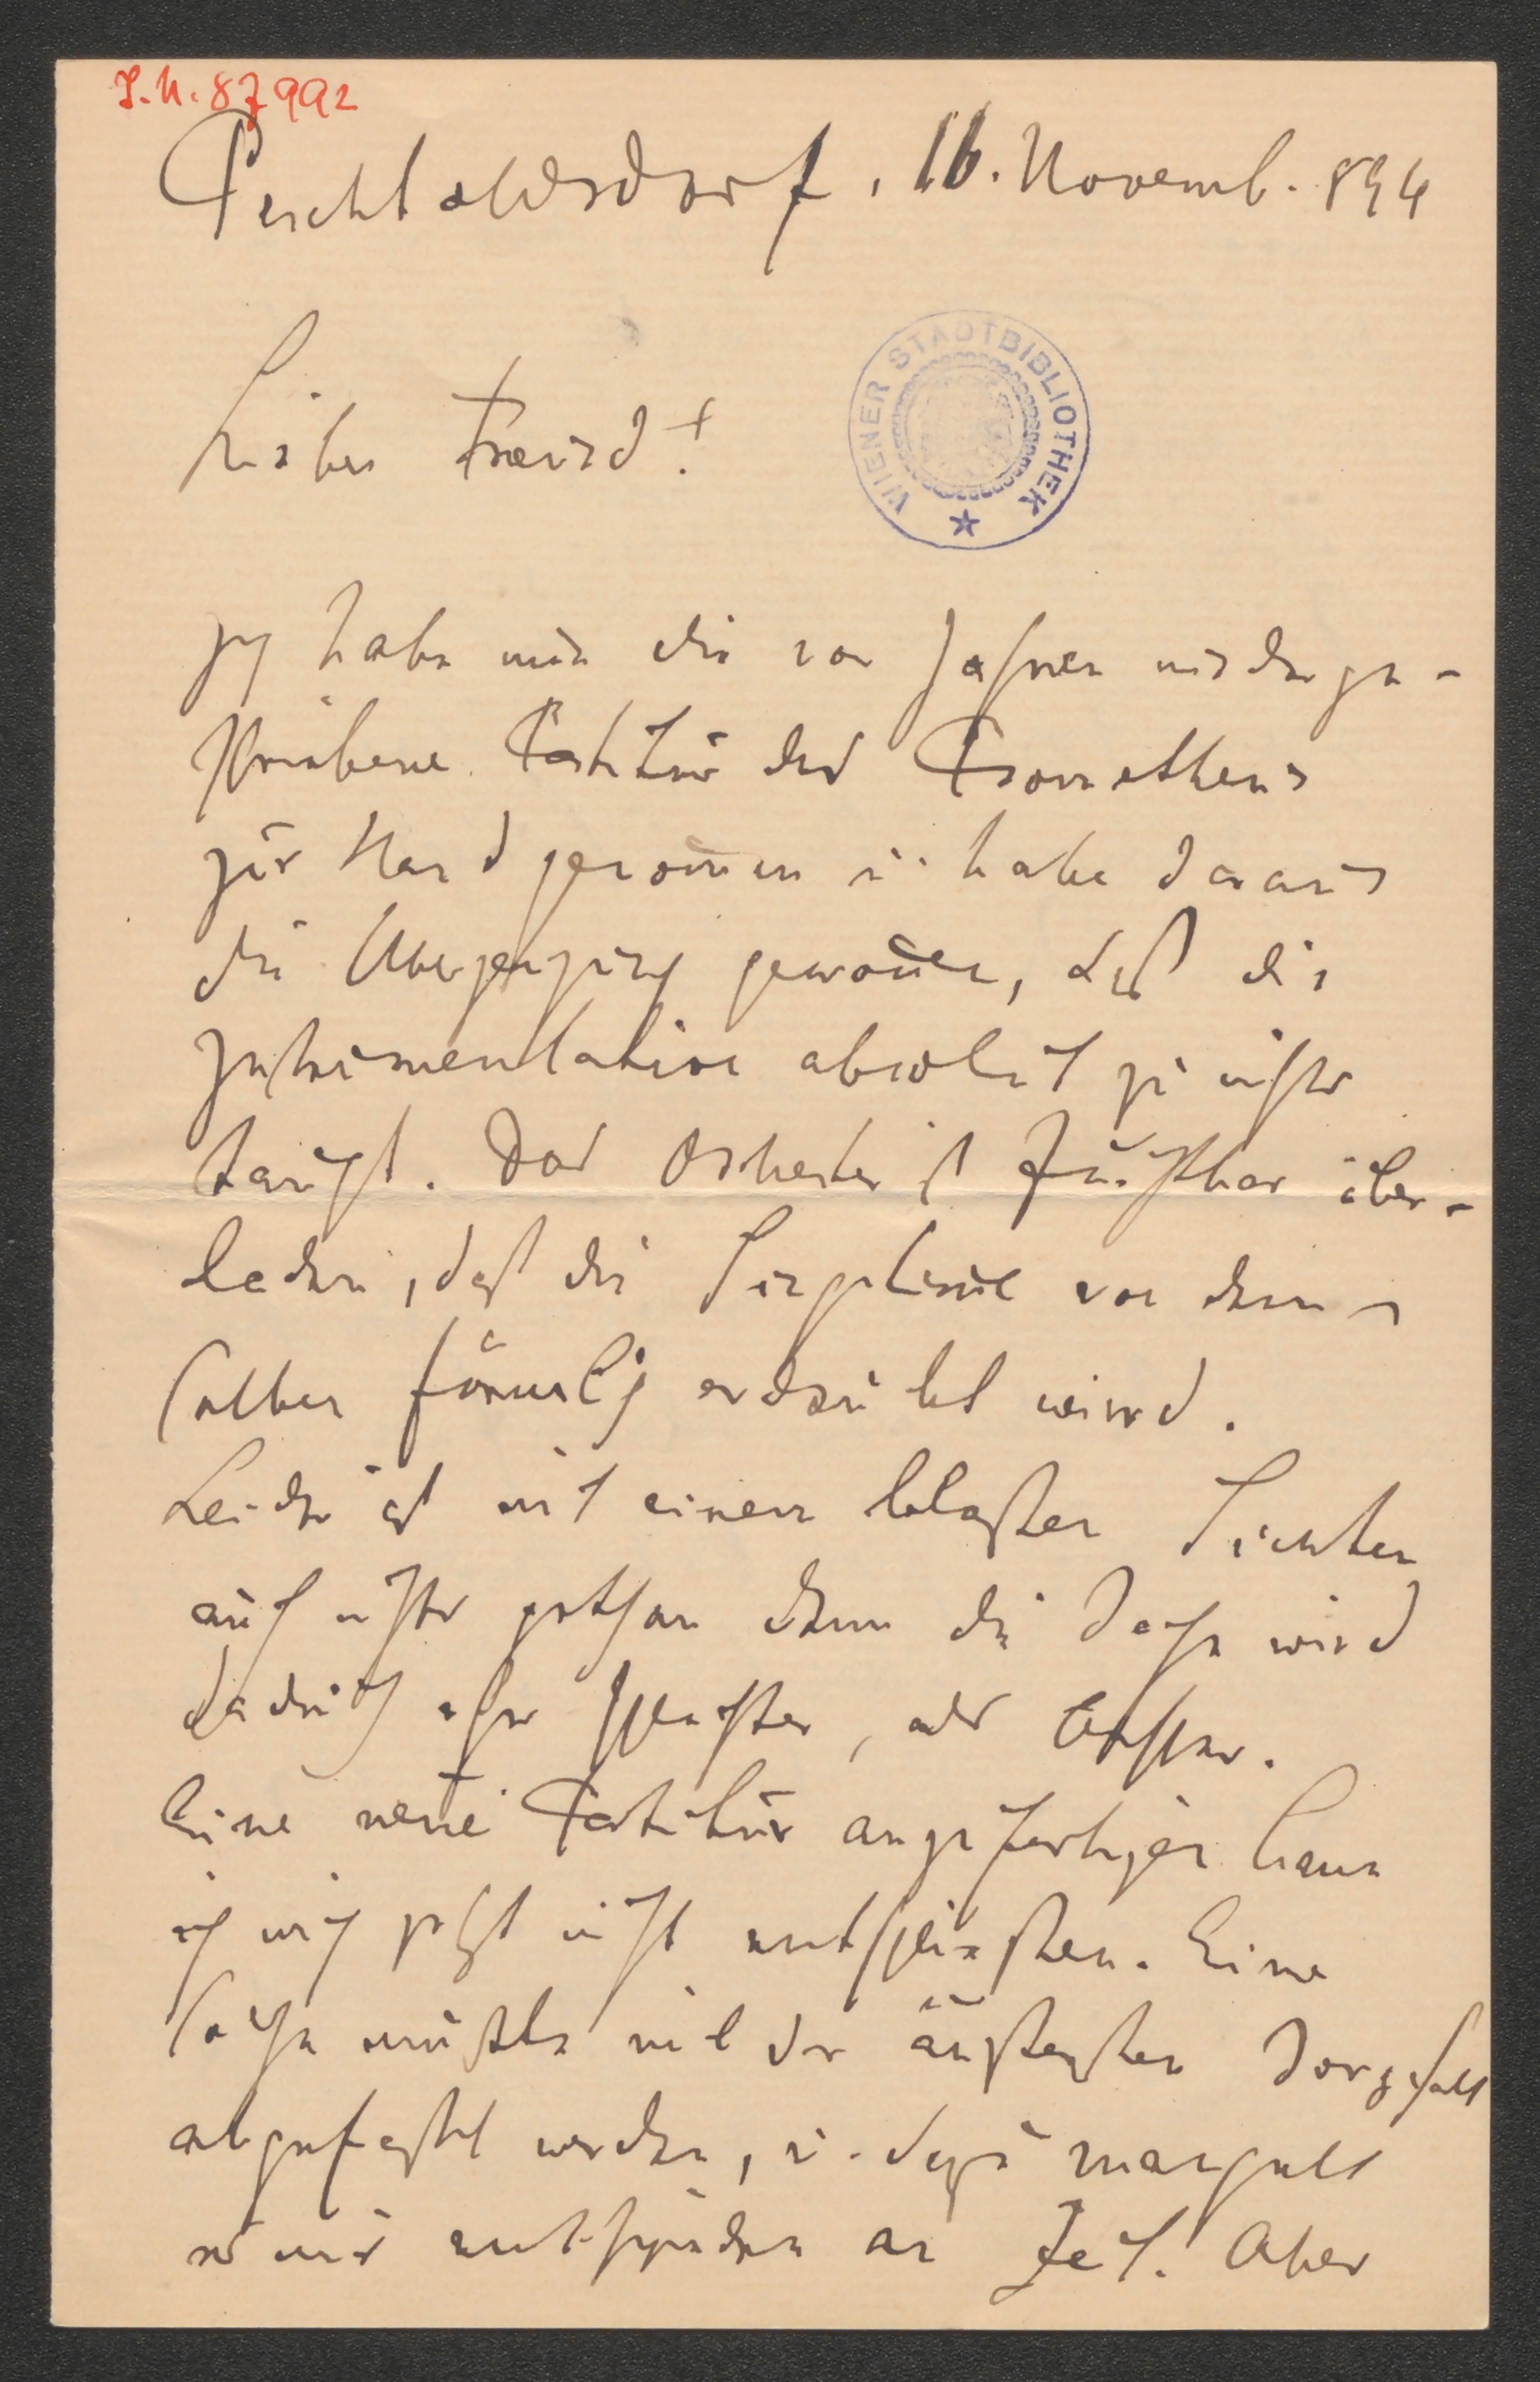 I.N. 87992
Perchtoldsdorf, 16. Novemb. 894
WIENER STADTBIBLIOTHEK
Lieber Freund!
Ich habe mir die vor Jahren niederge-
schriebene Partitur des Prometheus
zur Hand genom̄en u. habe daraus
die Überzeugung gewon̄en, daß die
Instrumentation absolut zu nichts
taugt. Das Orchester ist furchtbar über-
laden, daß die Singstimme von dem-
selben förmlich erdrückt wird.
Leider ist mit einem bloßen Lichten
auch nichts gethan denn die Sache wird
dadurch eher schlechter, als besser.
Eine neue Partitur anzufertigen kann
ich mich jetzt nicht entschließen. Eine
solche müßte mit der äußersten Sorgfalt
abgefaßt werden, u. dazu mangelt
es mir entschieden an Zeit. Aber